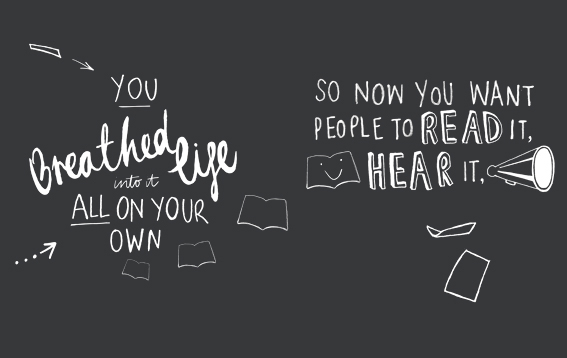 YOU
Breathed life
into it
ALL ON YOUR
OWN
SO NOW YOU WANT
PEOPLE TO READ IT,
HEAR IT,